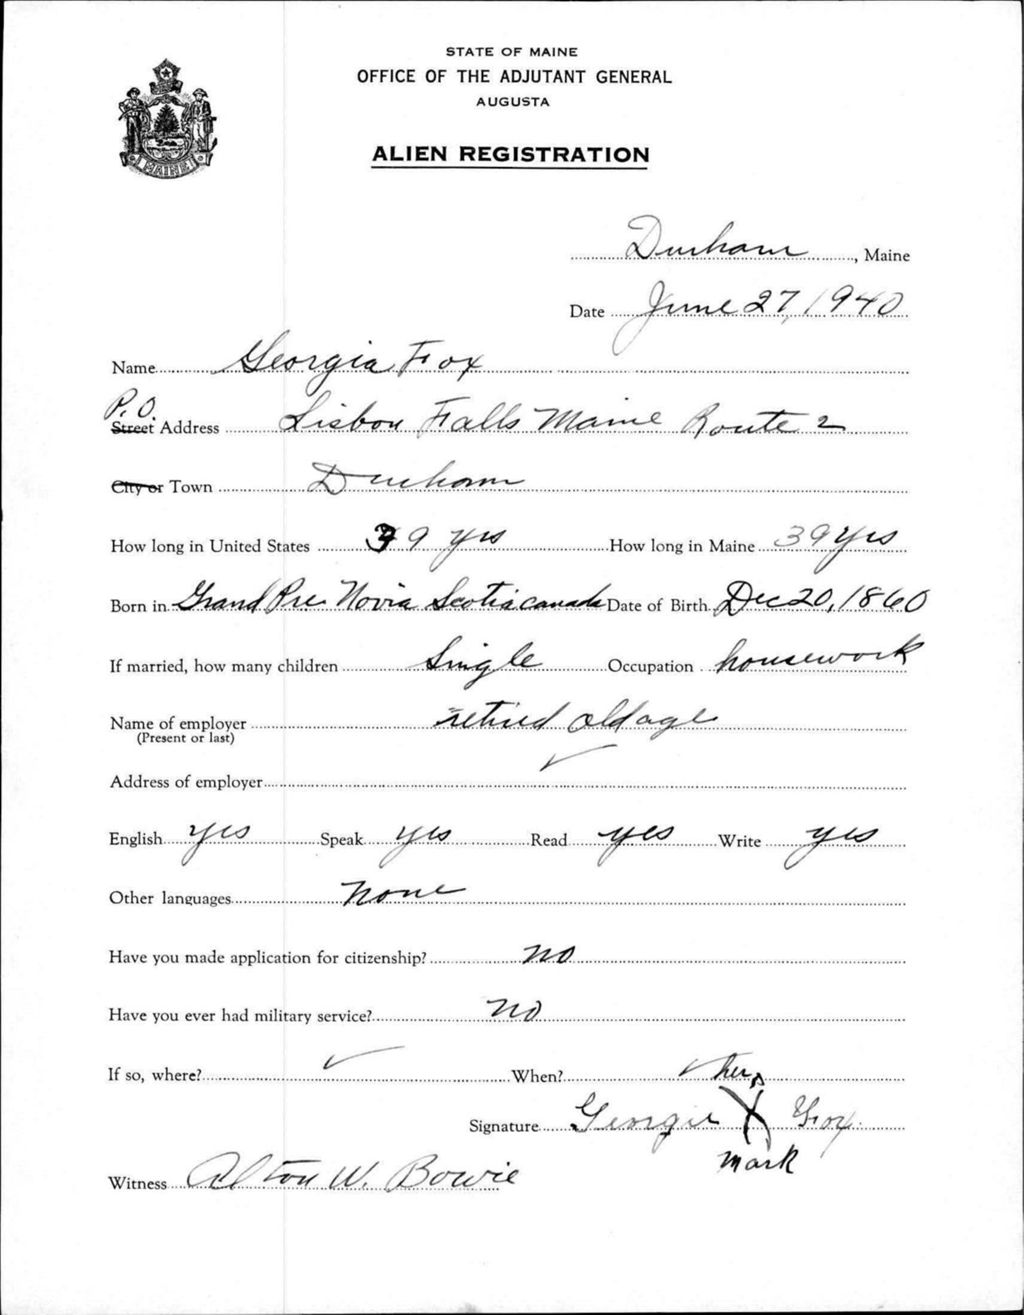 STATE OF MAINE
OFFICE OF THE ADJUTANT GENERAL
AUGUSTA
ALIEN REGISTRATION
MAINE
Durham, Maine
Date June 27, 1940
Name Georgia Fox
P.O.
Street Address Lisbon Falls Maine Route 2
City or Town Durham
How long in United States 39 yrs How long in Maine 39 yrs
Born in Grand Pre Novia Scotia canada Date of Birth Dec 20, 1860
If married, how many children Single Occupation housework
Name of employer retired old age
(Present or last)
Address of employer
English yes Speak yes Read yes Write yes
Other languages none
Have you made application for citizenship? no
Have you ever had military service? no
If so, where? When?
her
Signature Georgie X Fox
mark
Witness Alton W. Bowie